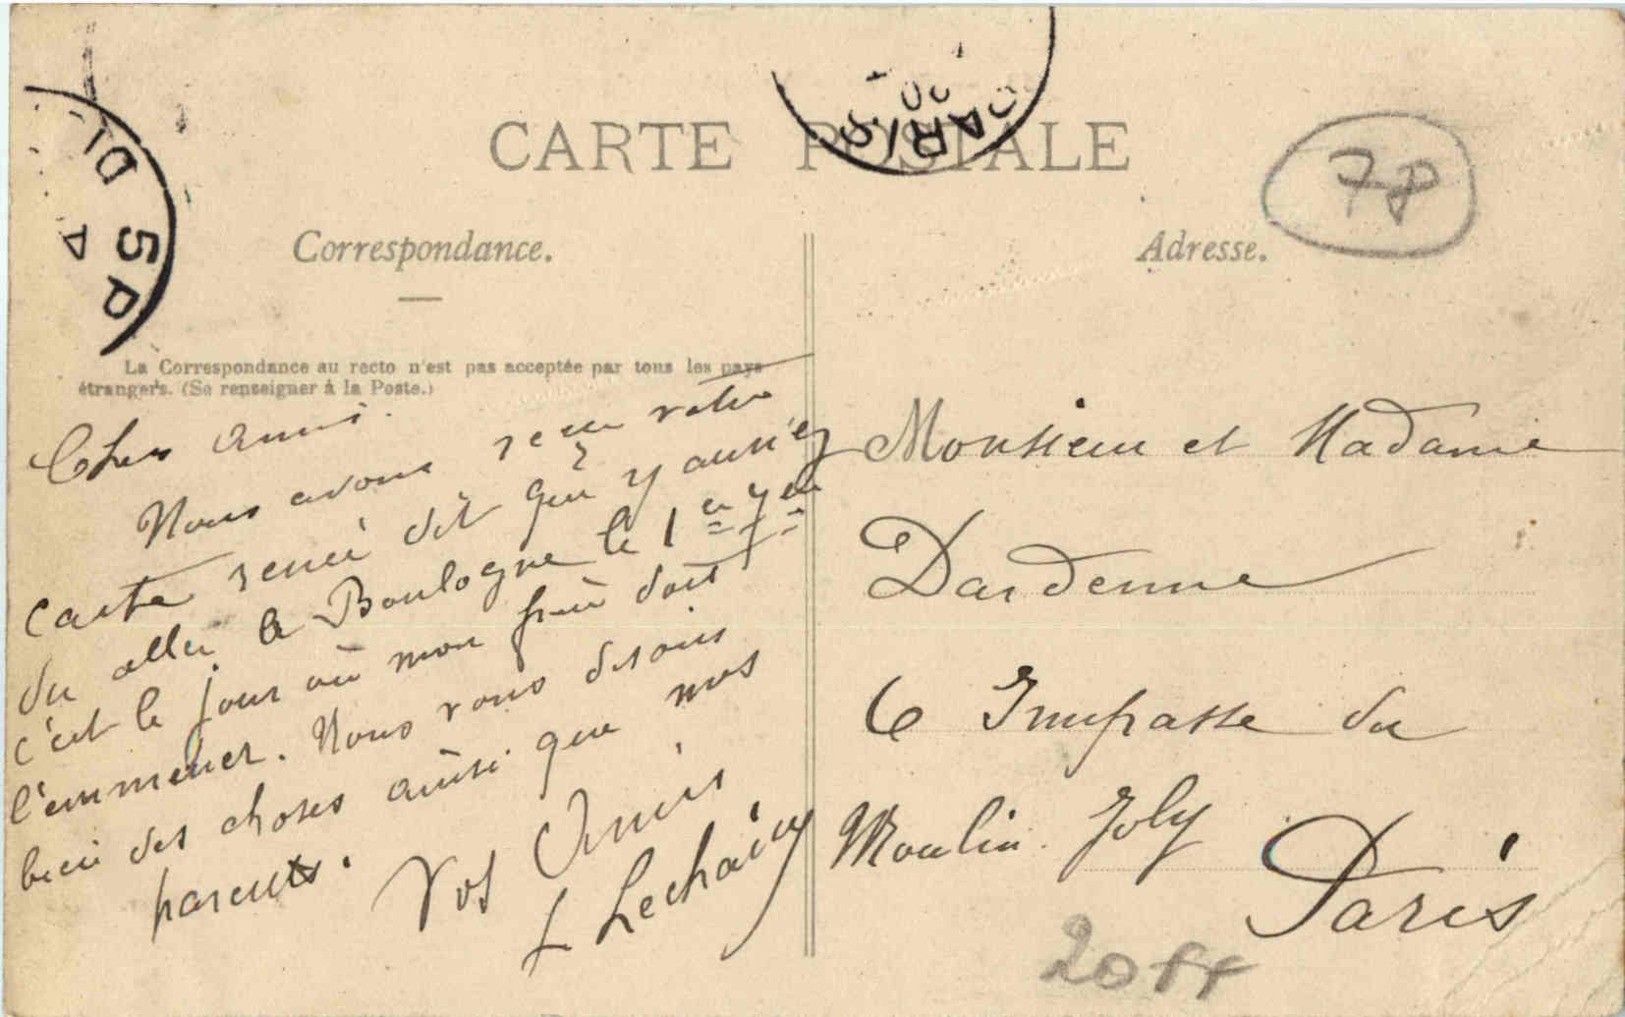 CARTE POSTALE
PARIS
5 P
78
Correspondance.
Adresse.
La Correspondance au recto n'est pas acceptée par tous les pays
étrangers. (Se renseigner à la Poste.)
Chers amis.
Nous avons reçu votre
carte René dit que y auriez
du aller a Boulogne le 1er
c'est le jour où mon frère doit
l'emmener. Nous vous disons
bien des choses ainsi que mes
parents.
Vos Amis
L Lechainy
Monsieur et Madame
Dardenne
6 Impasse du
Moulin Joly
Paris
20